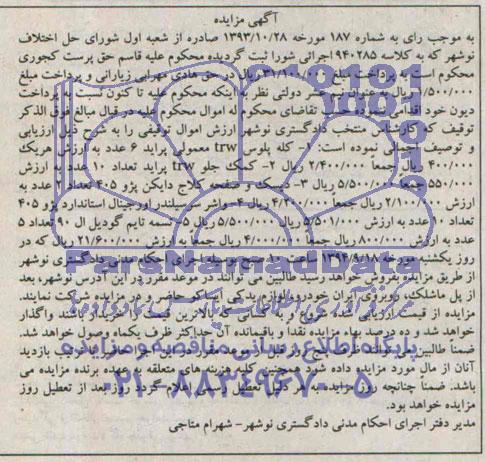 آگهی مزایده
به موجب رای به شماره ۱۸۷ مورخه ۱۳۹۳/۱۰/۲۸ صادره از شعبه اول شورای حل اختلاف
نوشهر که به کلاسه ۹۴۰۲۸۵ اجرائی شورا ثبت گردیده محکوم علیه قاسم حق پرست کجوری
محکوم است به پرداخت مبلغ ریال در حق هادی مهرابی زیارانی و پرداخت مبلغ
۱/۵۰۰/۰۰۰ ریال به عنوان نیم عشر دولتی نظر به اینکه محکوم علیه تا کنون نسبت به پرداخت
دیون خود اقدامی تقاضای محکوم له اموال محکوم علیه در قبال مبالغ فوق الذکر
توقیف که کارشناس منتخب دادگستری نوشهر ارزش اموال توقیفی را به شرح ذیل ارزیابی
و توصیف اجمالی نموده است: ۱- کله پلوس trw معمولی پراید ۶ عدد به ارزش هریک
۴۰۰/۰۰۰ ریال جمعاً ۲/۴۰۰/۰۰۰ ریال ۲- کمک جلو trw پراید تعداد ۱۰ عدد به ارزش
۵۵۰/۰۰۰ جمعاً ۵/۵۰۰/۰۰۰ ریال ۳- دیسک و صفحه کلاج دایکن پژو ۴۰۵ تعداد ۲ عدد به
ارزش ۲/۱۰۰/۰۰۰ ریال جمعاً ۴/۲۰۰/۰۰۰ ریال ۴- واشر سرسیلندر اورجینال استاندارد پژو ۴۰۵
تعداد ۱۰ عدد به ارزش ریال ۵/۵۰۰/۰۰۰ ریال ۵- تسمه تایم گودیل ال ۹۰ تعداد ۵
عدد به ارزش ۸۰۰/۰۰۰ ریال جمعاً ۴/۰۰۰/۰۰۰ ریال جمعاً به ارزش ۲۱/۶۰۰/۰۰۰ ریال که در
روز یکشنبه مورخه ۱۳۹۴/۹/۱۸ ساعت ۱۰ صبح بوسیله اجرای احکام مدنی دادگستری نوشهر
از طریق مزایده بفروش خواهد رسید طالبین می توانند در موعد مقرر در این آدرس نوشهر، بعد
از پل ماشلک، روبروی ایران خودرو، لوازم یدکی حاضر و در مزایده شرکت نمایند.
مزایده از قیمت ارزیابی شده شروع و به کسانی که بالاترین قیمت را خریدار باشند واگذار
خواهد شد و ده درصد بهاء مزایده نقدا و باقیمانده آن حداکثر ظرف یکماه وصول خواهد شد.
ضمناً طالبین می توانند ظرف پنج روز قبل از موعد مقرر در این اجرا حاضر تا ترتیب بازدید
آنان از مال مورد مزایده داده شود همچنین کلیه هزینه های متعلقه به عهده برنده مزایده می
باشد. ضمناً چنانچه روز مزایده به هر دلیل تعطیل رسمی اعلام گردد روز بعد از تعطیل روز
مزایده خواهد بود.
مدیر دفتر اجرای احکام مدنی دادگستری نوشهر- شهرام متاجی
ParsNamadData
پایگاه اطلاع رسانی مناقصه و مزایده
۰۲۱-۸۸۳۴۹۶۷۰-۵